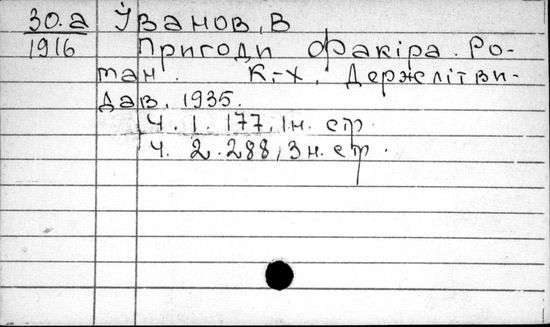 30.а Ўванов, В
1916 Пригоди факіра. Ро-
ман. К.-Х. Держлітви-
дав. 1935.
Ч. 1. 177, 1 н. стр.
Ч. 2. 288, 3 н. стр.